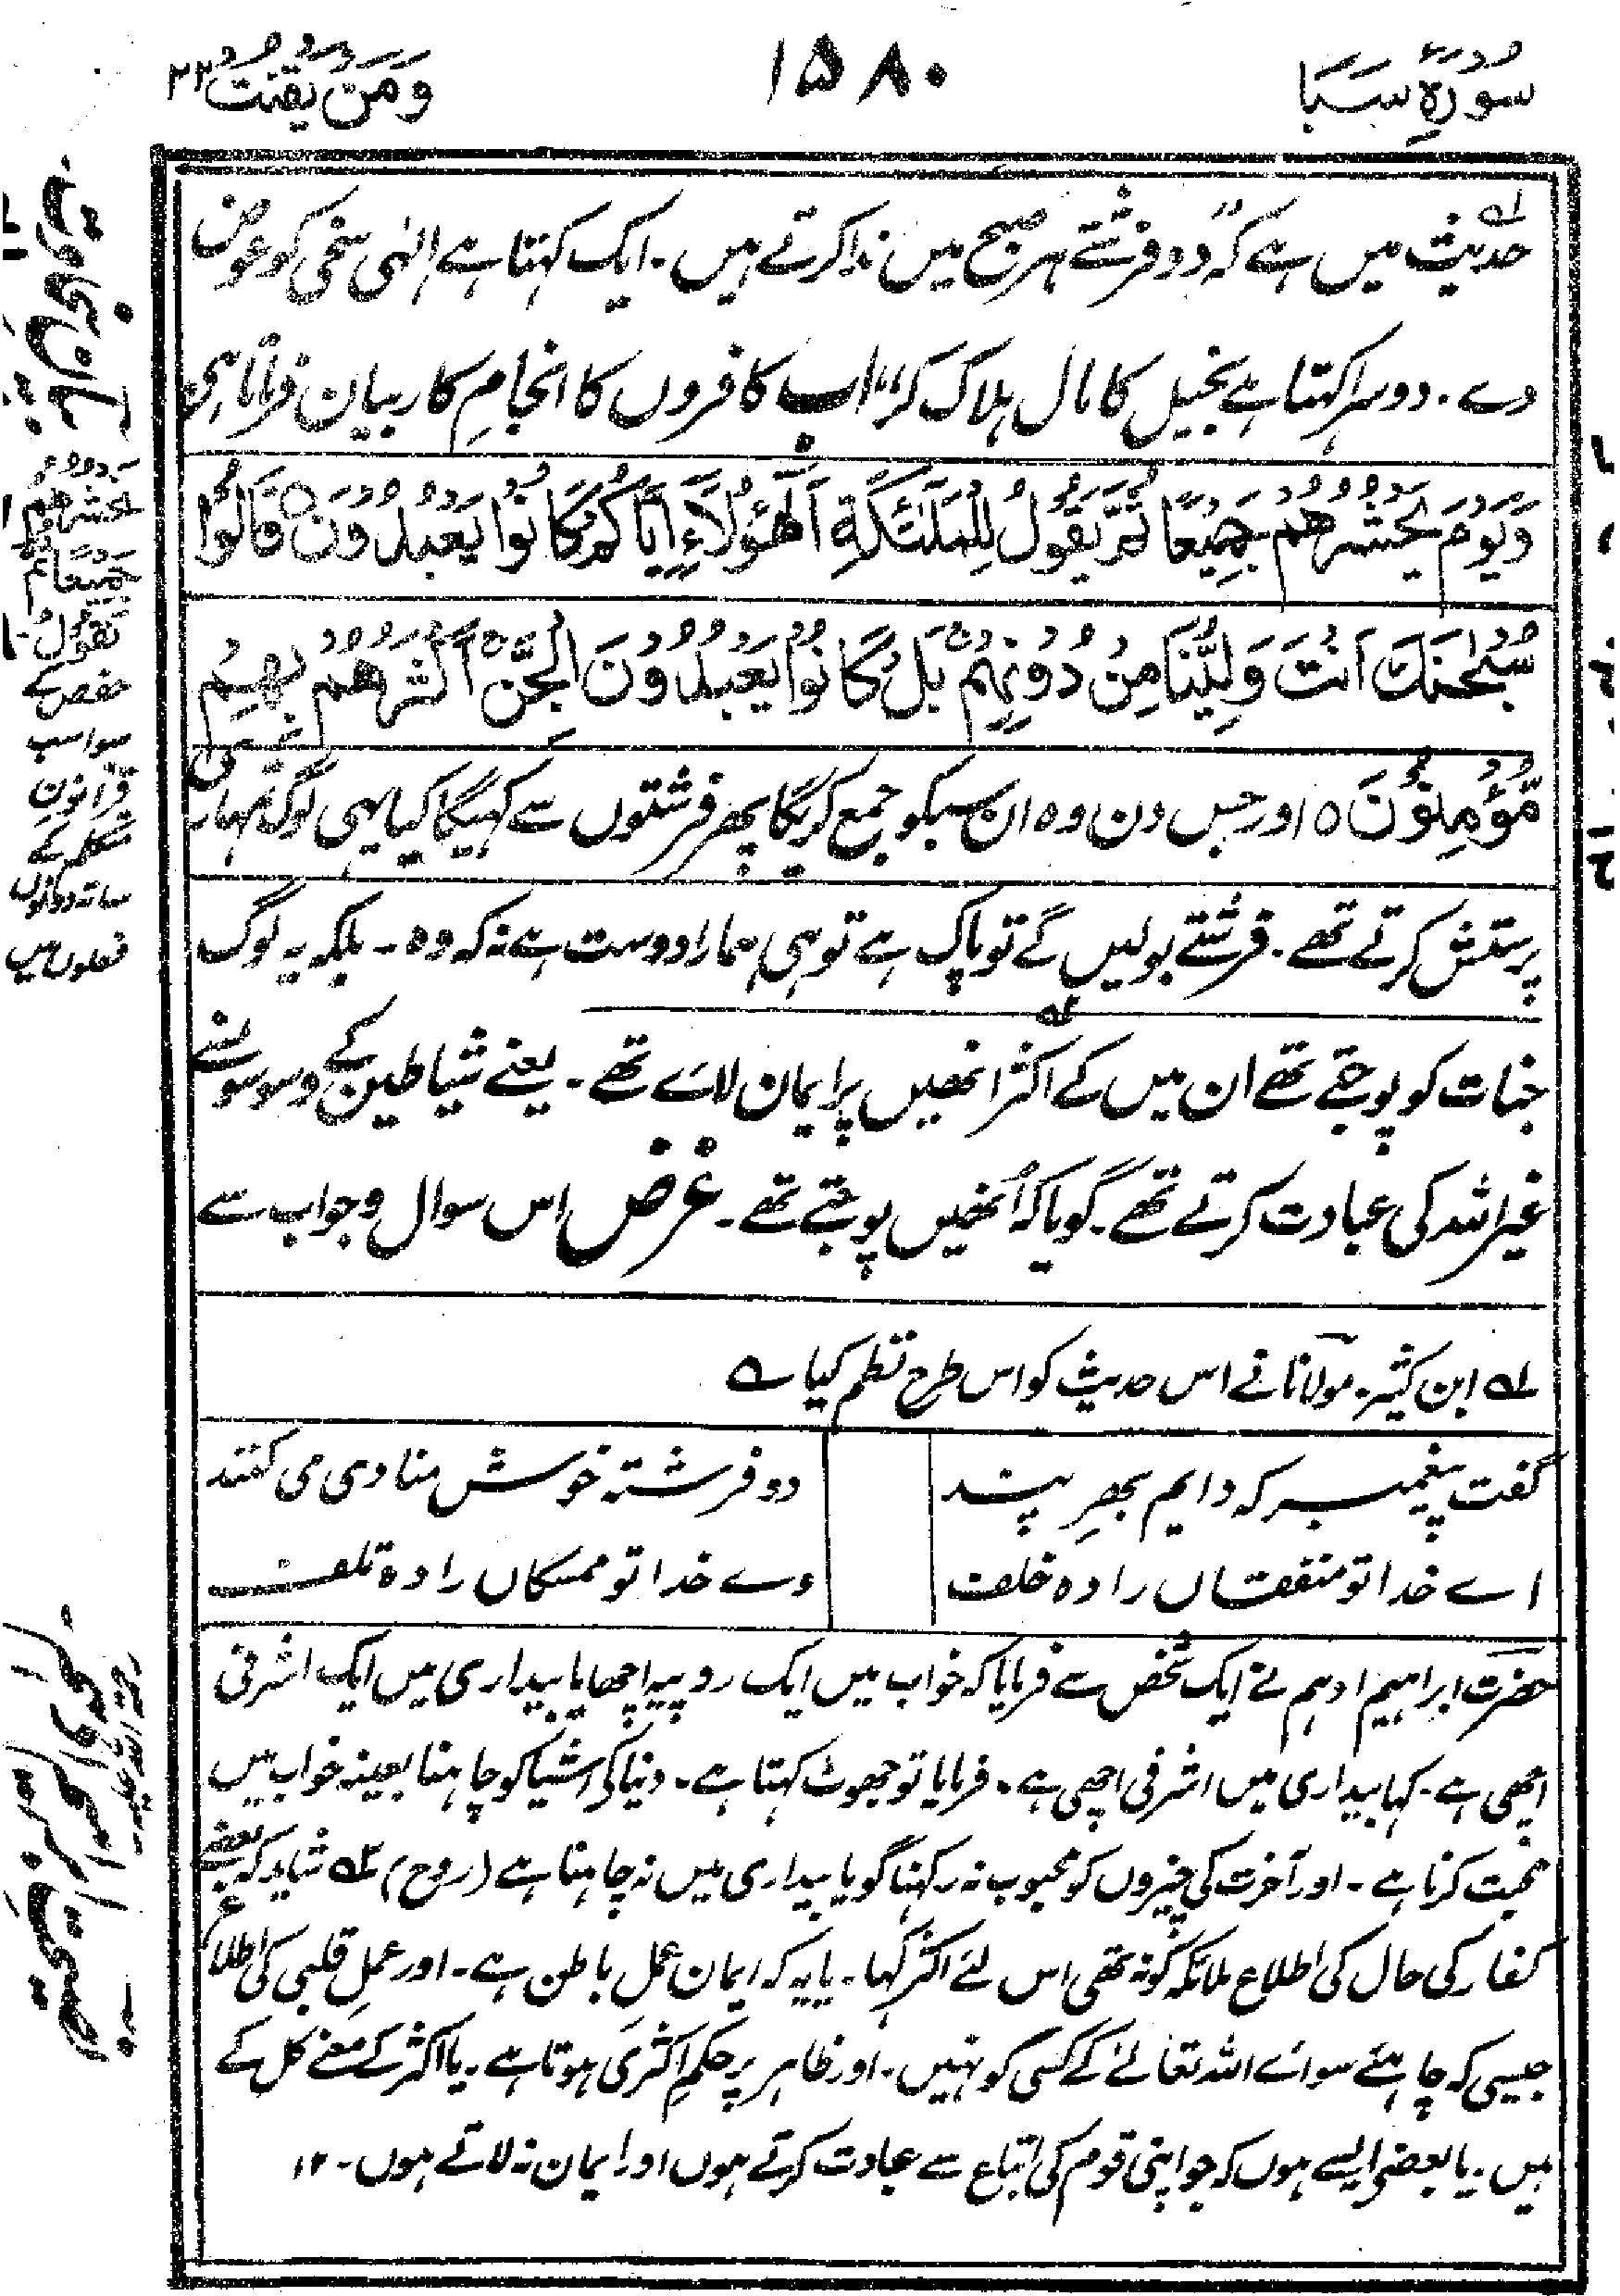 سُوْرَۃُ سَبَا
۱۵۸۰
وَمَنْ یَّقْنُتْ ۲۲
حدیث میں ہے کہ "دو فرشتے ہر صبح میں ندا کرتے ہیں ۔ ایک کہتا ہے الٰہی سخی کو عوض
دے ۔ دوسرا کہتا ہے بخیل کا مال ہلاک کر" اب کافروں کا انجامِ کار بیان فرماتا ہی
وَیَوْمَ یَحْشُرُهُمْ جَمِیْعًا ثُمَّ یَقُوْلُ لِلْمَلٰٓئِكَةِ اَهٰٓؤُلَآءِ اِیَّاكُمْ كَانُوْا یَعْبُدُوْنَ ○ قَالُوْا
سُبْحٰنَكَ اَنْتَ وَلِیُّنَا مِنْ دُوْنِهِمْ بَلْ كَانُوْا یَعْبُدُوْنَ الْجِنَّ اَكْثَرُهُمْ بِهِمْ
مُّؤْمِنُوْنَ ○ اور جس دن وہ ان سبکو جمع کریگا پھر فرشتوں سے کہیگا کیا یہی لوگ تمہاری
پرستش کرتے تھے ۔ فرشتے بولیں گے تو پاک ہے تو ہی ہمارا دوست ہے نہ کہ وہ ۔ بلکہ یہ لوگ
جنات کو پوجتے تھے ان میں کے اکثر انھیں پر ایمان لائے تھے ۔ یعنے شیاطین کے وسوسے
غیر اللہ کی عبادت کرتے تھے ۔ گویا کہ اُنھیں پوجتے تھے ۔ غرض اس سوال و جواب سے
لہ ابن کثیر ۔ مولانا نے اس حدیث کو اس طرح نظم کیا ہے
گفت پیغمبر کہ دایم بہرِ پند
دو فرشتہ خوش منادی می کنند
اے خدا تو منفقاں را دہ خلف
وے خدا تو ممسکاں را دہ تلف
حضرت ابراہیم ادہم نے ایک شخص سے فرمایا کہ خواب میں ایک روپیہ اچھا یا بیداری میں ایک اشرفی
اچھی ہے ۔ کہا بیداری میں اشرفی اچھی ہے ۔ فرمایا تو جھوٹ کہتا ہے ۔ دنیا کی اشیا کو چاہنا بعینہ خواب میں
محبت کرنا ہے ۔ اور آخرت کی چیزوں کو محبوب نہ رکھنا گویا بیداری میں نہ چاہنا ہے (روح) ۲ہ شاید کہ بعضے
کفار کی حال کی اطلاع ملائکہ کو نہ تھی اس لئے اکثر کہا ۔ یا یہ کہ ایمان عملِ باطن ہے ۔ اور عملِ قلبی کی اطلاع
جیسی کہ چاہئے سوائے اللہ تعالےٰ کے کسی کو نہیں ۔ اور ظاہر پر حکمِ اکثری ہوتا ہے ۔ یا اکثر کے معنے کل کے
ہیں ۔ یا بعضے ایسے ہوں کہ جو اپنی قوم کی اتباع سے عبادت کرتے ہوں اور ایمان نہ لاتے ہوں ۔ ۱۲
یَحْشُرُهُمْ
جَمِیْعًا ثُمَّ
نَقُوْلُ ۔
حفص کے
سوا سب
قرا نونِ
متکلم کے
ساتھ دونوں
فعلوں میں